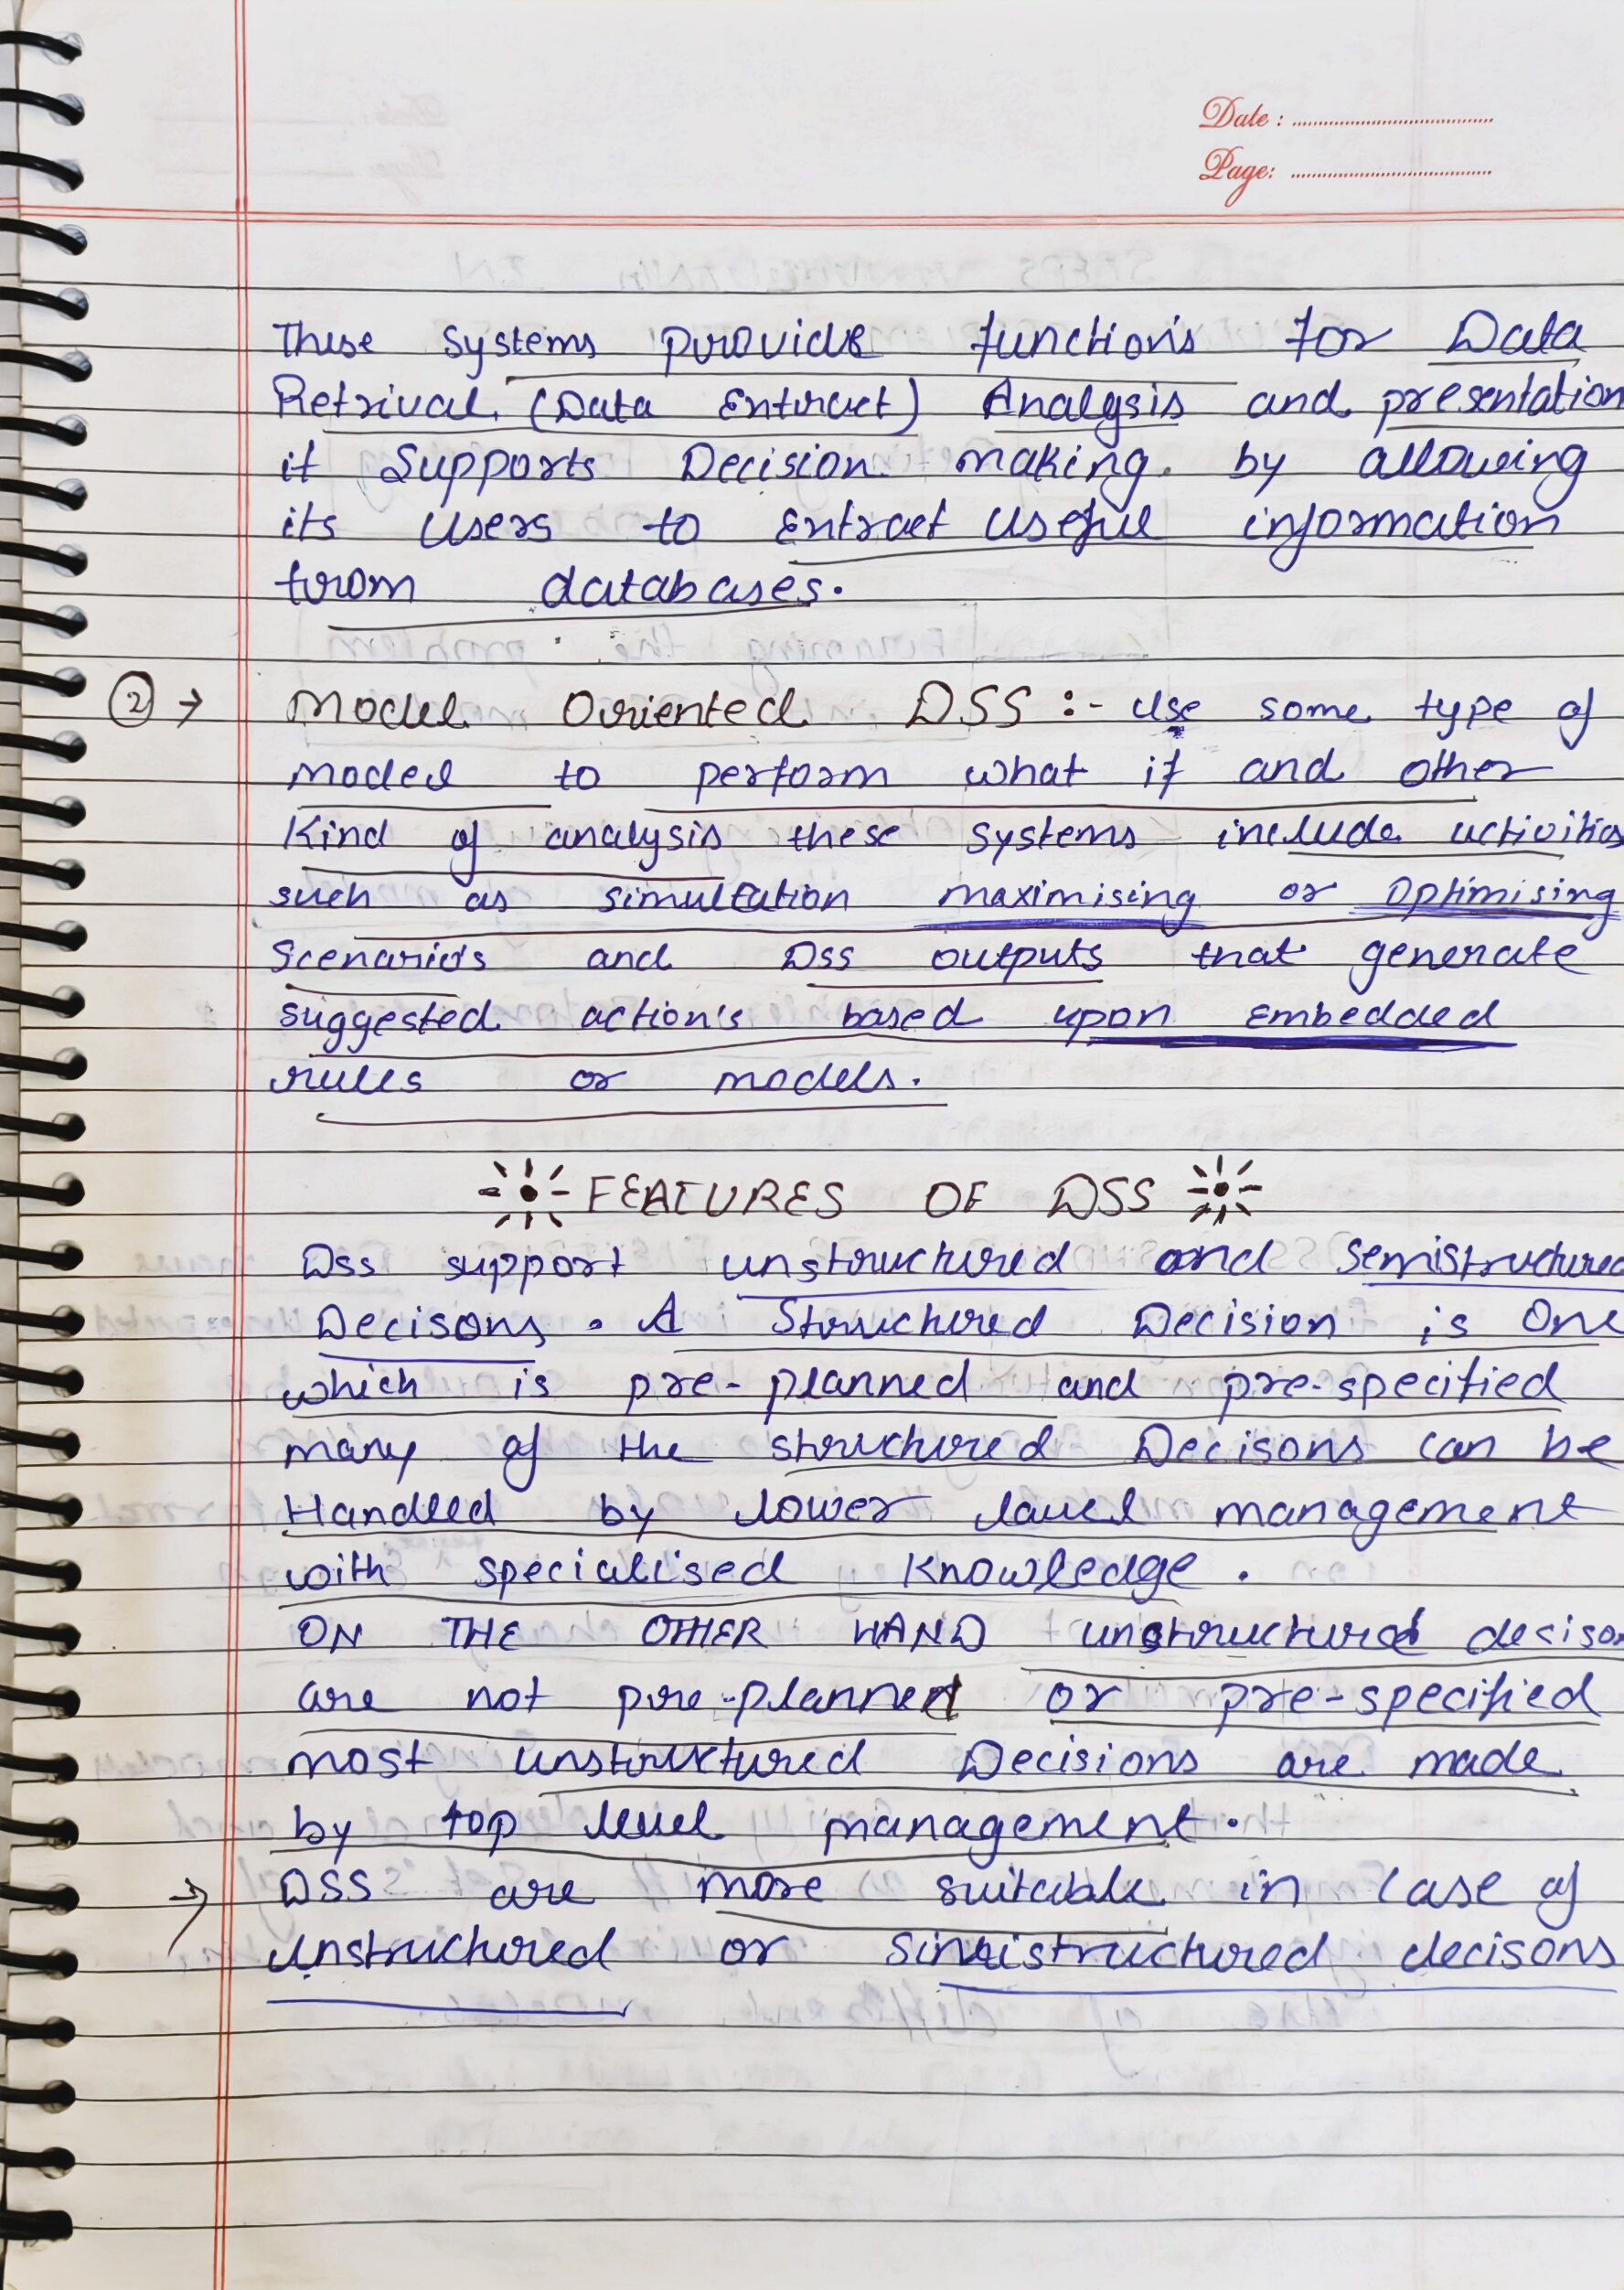 Date : ..............................
Page: ..............................
These systems provide function's for Data
Retrival (Data Extract) Analysis and presentation
it Supports Decision making. by allowing
its users to extract useful information
from databases.
② → Model Oriented DSS :- Use some type of
model to perform what if and other
Kind of analysis these systems include activities
such as simulation maximising or Optimising
Scenario's and Dss outputs that generate
suggested action's based upon embedded
rules or models.
FEATURES OF DSS
Dss support unstructured and semistructured
Decisons. A Structured Decision is One
which is pre-planned and pre-specified
many of the structured Decisons can be
Handled by lower lavel management
with specialised Knowledge.
ON THE OTHER HAND unstructured decison
are not pre-planned or pre-specified
most unstructured Decisions are made
by top level management.
→ DSS are more suitable in case of
unstructured or simistructured decisons